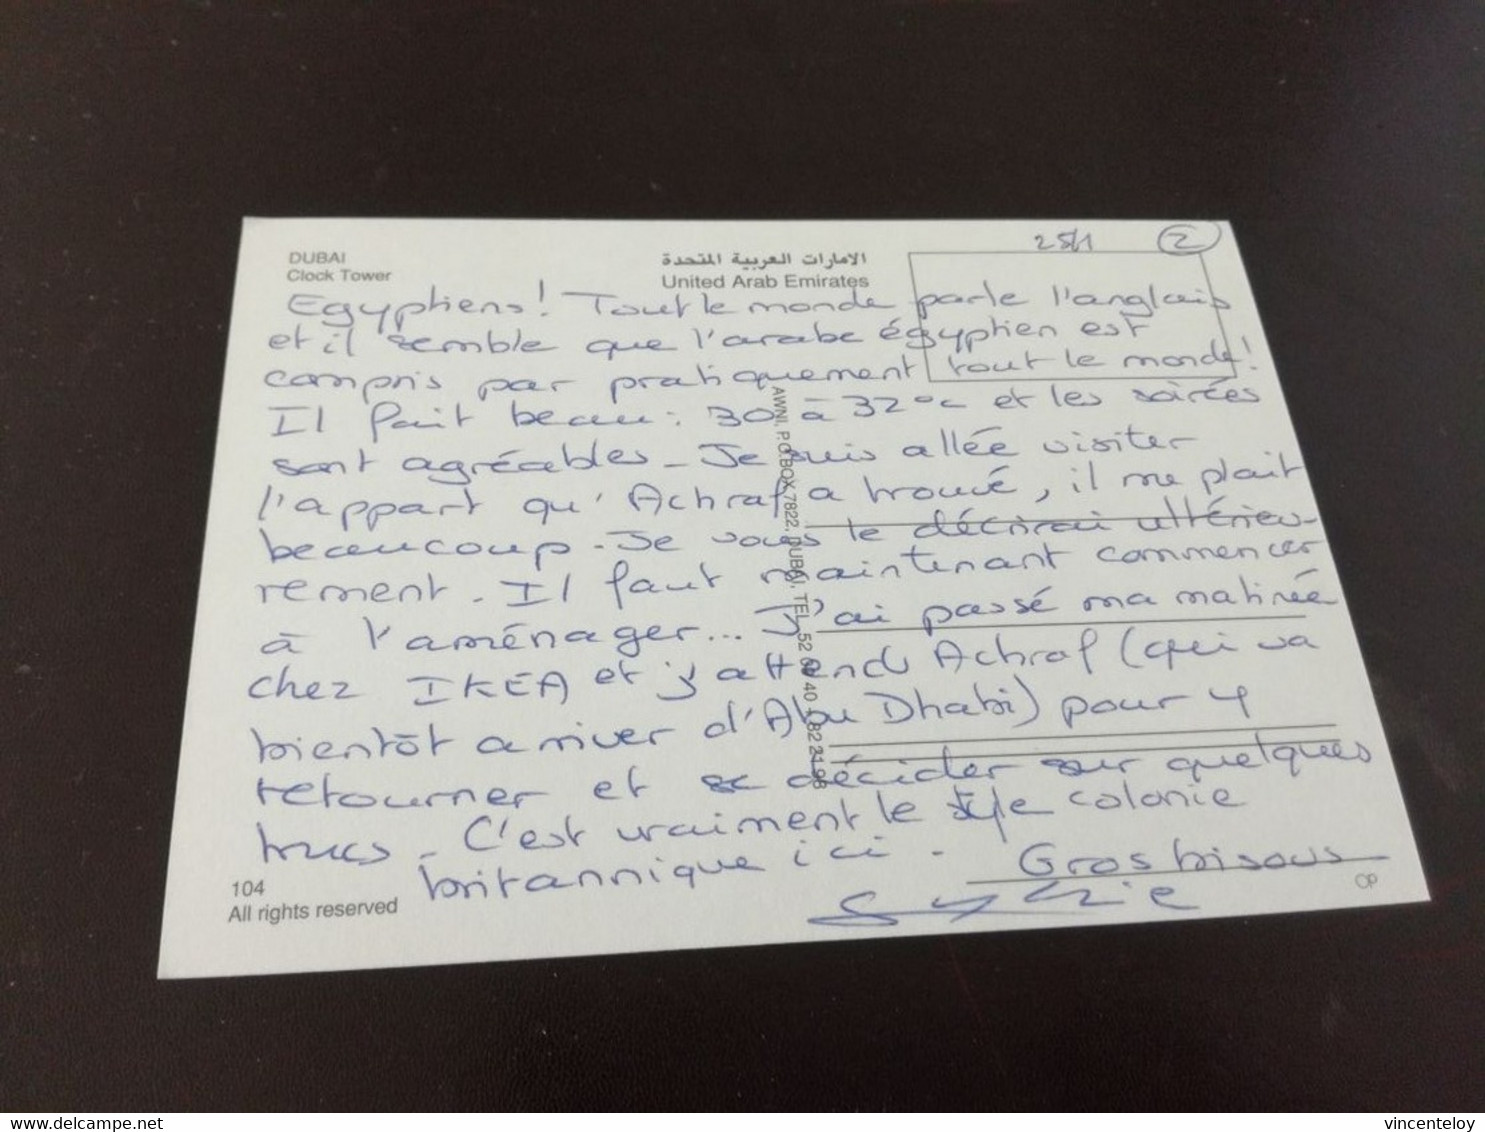 DUBAI
Clock Tower
الامارات العربية المتحدة
United Arab Emirates
25/1
2
Egyptiens! Tout le monde parle l'anglais
et il semble que l'arabe égyptien est
compris par pratiquement tout le monde!
Il fait beau: 30 à 32°c et les soirées
sont agréables - Je suis allée visiter
l'appart qu'Achraf a trouvé, il me plait
beaucoup. Je vous le décrirai ultérieu-
rement. Il faut maintenant commencer
à l'aménager... J'ai passé ma matinée
chez IKEA et j'attends Achraf (qui va
bientôt arriver d'Abu Dhabi) pour y
retourner et se décider sur quelques
trucs - C'est vraiment le style colonie
britannique ici.
Gros bisous
Sylvie
AWNI, P.O.BOX 7822, DUBAI, TEL
104
All rights reserved
OP
delcampe.net
vincenteloy